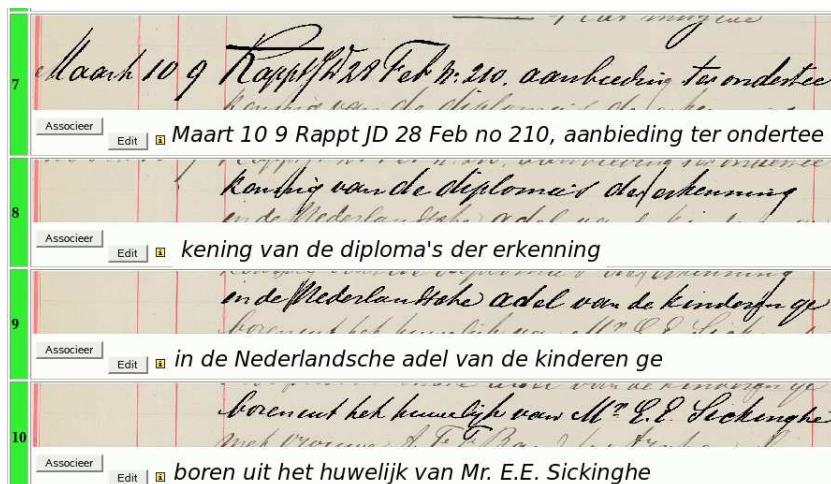 7
Maart 10 9 Rappt JD 28 Feb n: 210. aanbieding ter ondertee
Associeer Edit Maart 10 9 Rappt JD 28 Feb no 210, aanbieding ter ondertee
8
kening van de diploma's der erkenning
Associeer Edit kening van de diploma's der erkenning
9
in de Nederlandsche adel van de kinderen ge
Associeer Edit in de Nederlandsche adel van de kinderen ge
10
boren uit het huwelijk van Mr. E.E. Sickinghe
Associeer Edit boren uit het huwelijk van Mr. E.E. Sickinghe